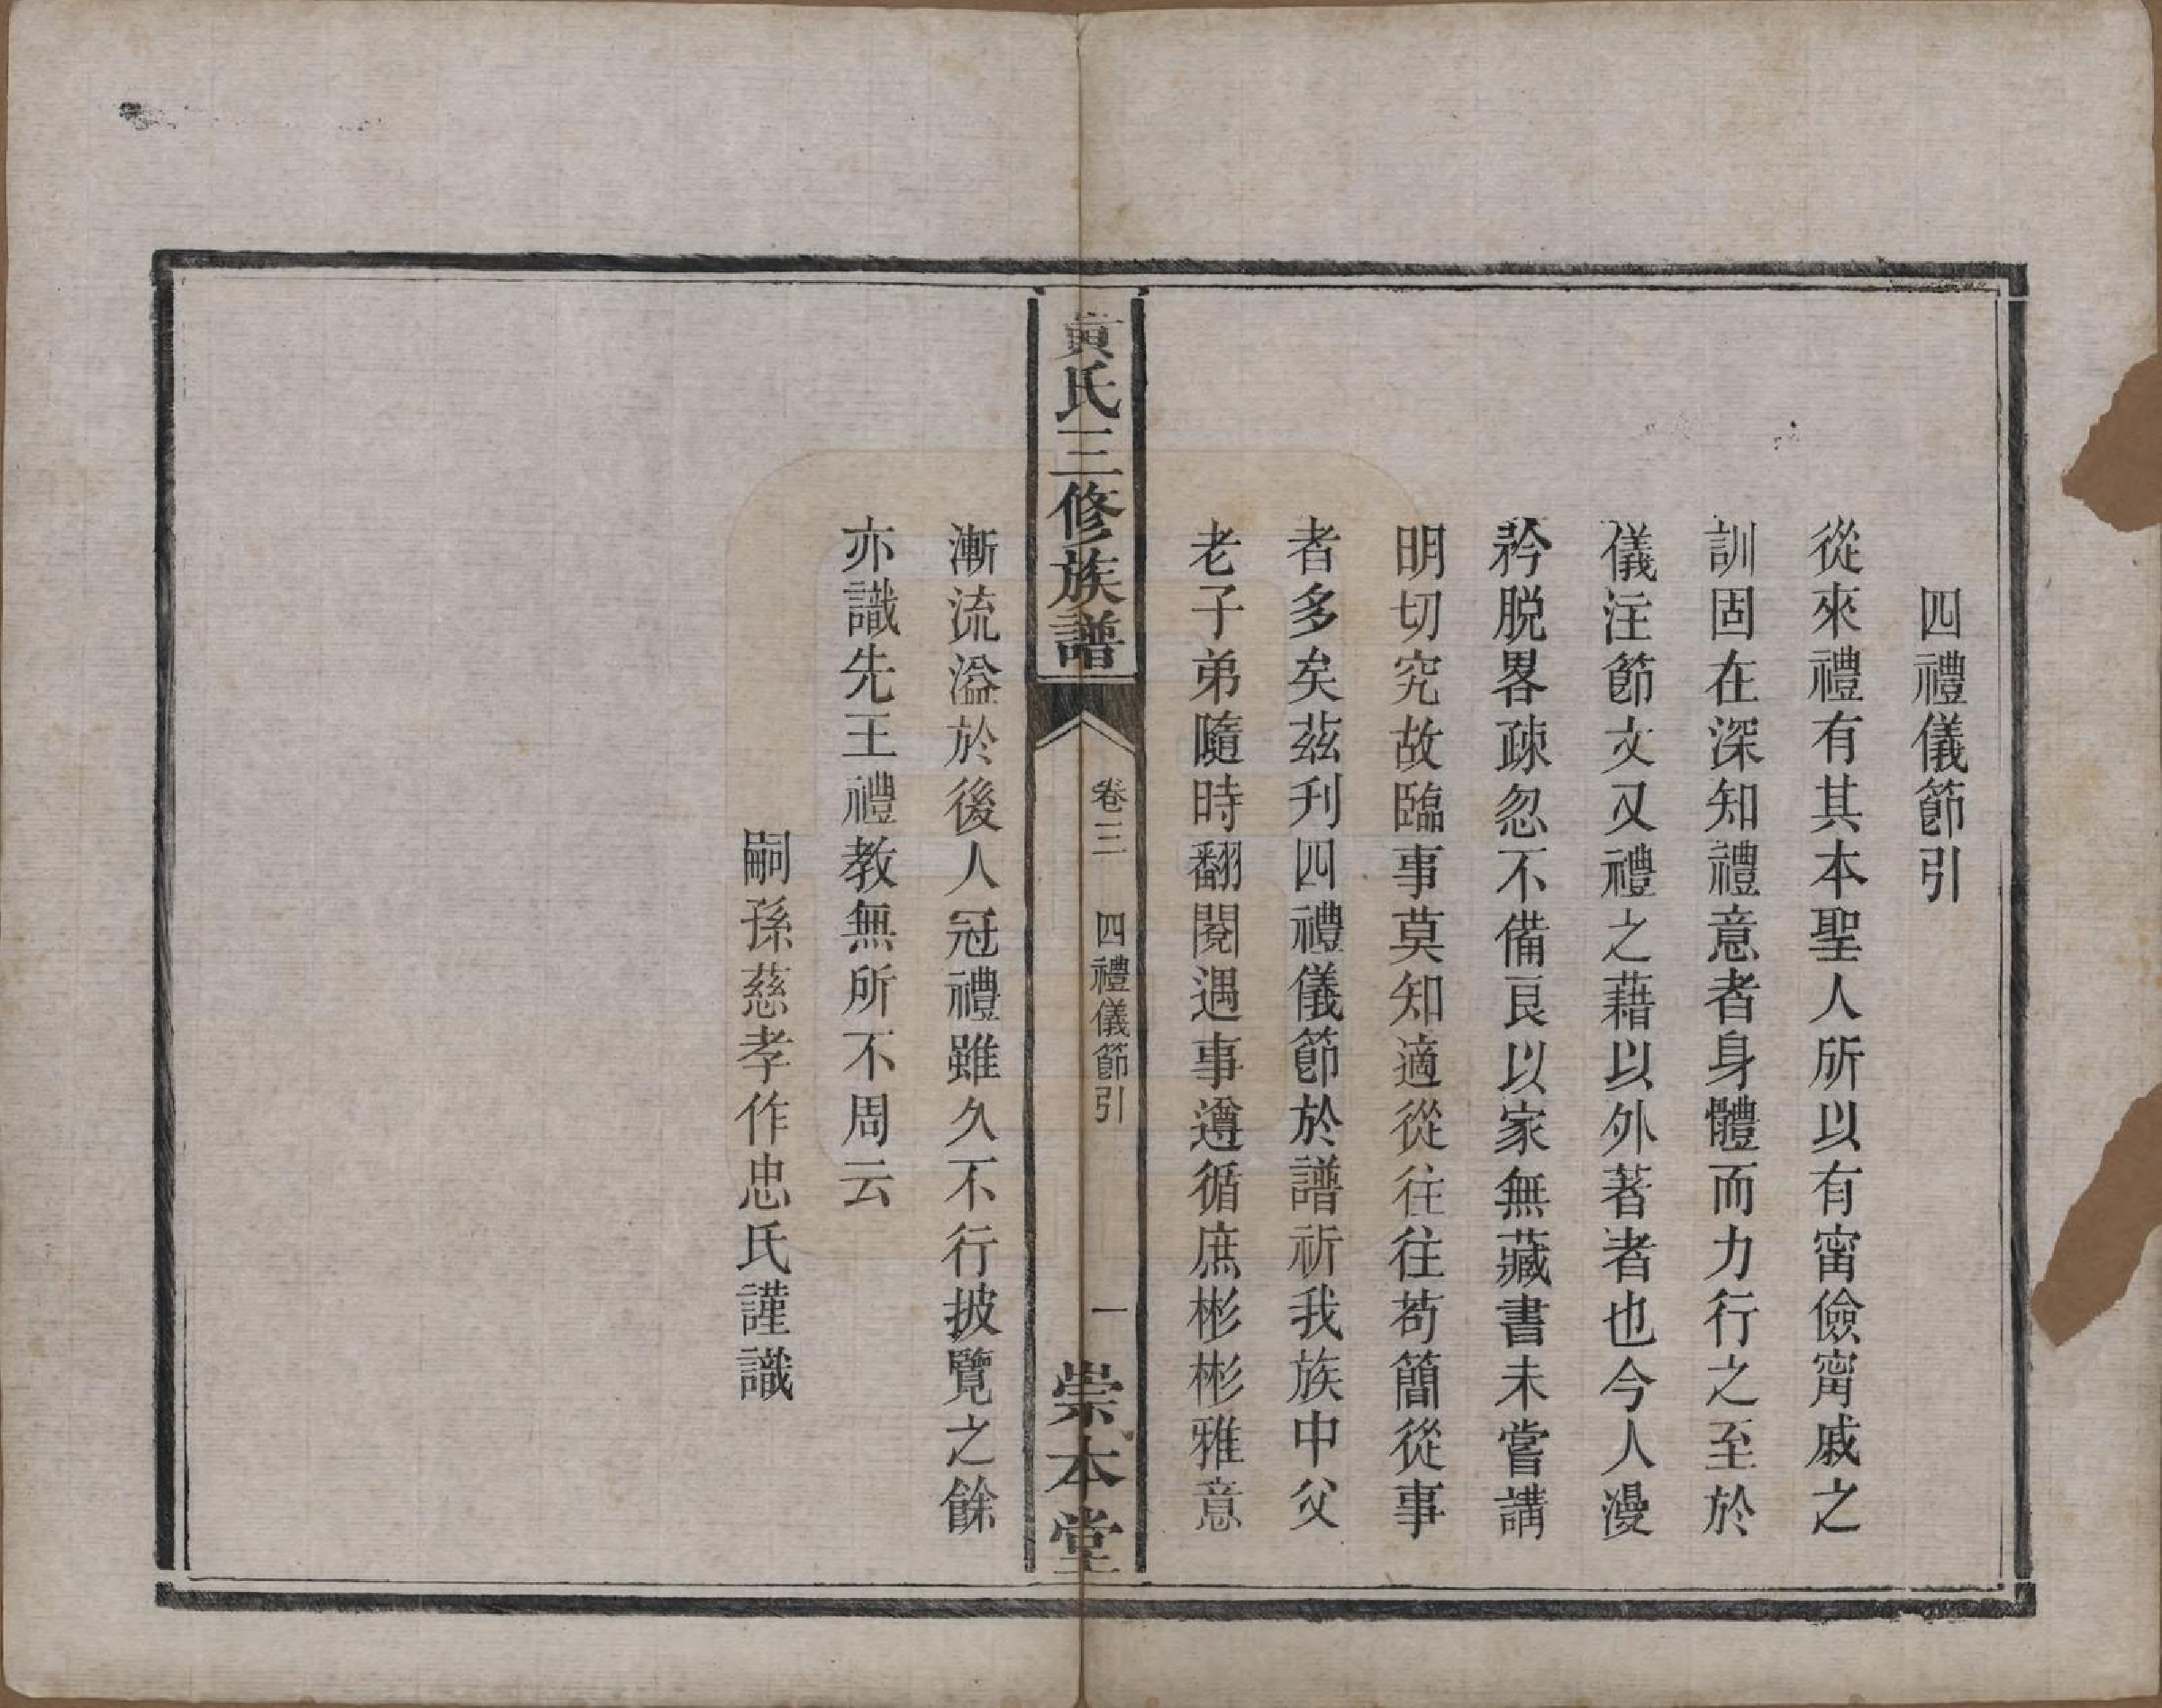 四禮儀節引
從來禮有其本聖人所以有甯儉甯戚之
訓固在深知禮意者身體而力行之至於
儀注節文又禮之藉以外著者也今人漫
矜脱畧疎忽不備良以家無藏書未嘗講
明切究故臨事莫知適從往往苟簡從事
者多矣茲刋四禮儀節於譜祈我族中父
老子弟隨時翻閱遇事遵循庶彬彬雅意
黄氏三修族譜
卷三
四禮儀節引
一
崇本堂
漸流溢於後人冠禮雖久不行披覽之餘
亦識先王禮教無所不周云
嗣孫慈孝作忠氏謹識